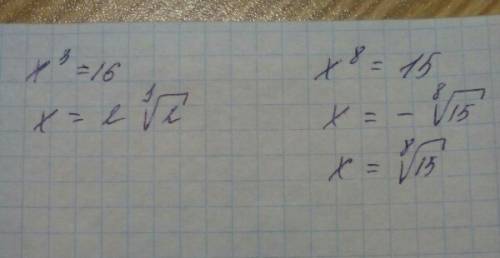 x³ = 16
x = 2 ∛2
x⁸ = 15
x = - ⁸√15
x = ⁸√15